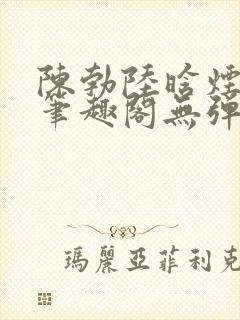 陳勃陸晗煙
筆趣閣無彈
瑪麗亞菲利克